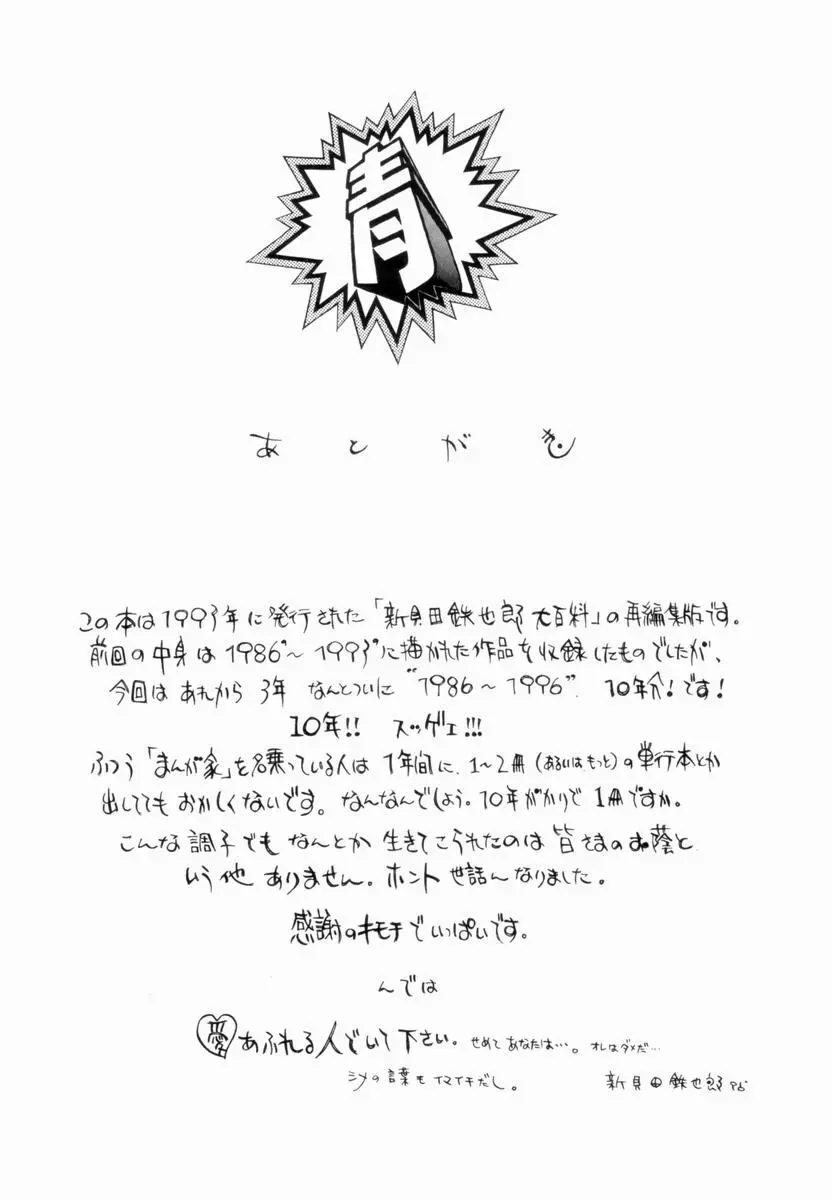 青
あとがき
この本は1993年に発行された「新貝田鉄也郎大百科」の再編集版です。
前回の中身は1986〜1993に描かれた作品を収録したものでしたが、
今回はあれから3年 なんとついに"1986〜1996" 10年分!です!
10年!! スッゲェ!!!
ふつう「まんが家」を名乗っている人は1年間に、1〜2冊(あるいはもっと)の単行本とか
出しててもおかしくないです。なんなんでしょう。10年がかりで1冊ですか。
こんな調子でもなんとか生きてこられたのは皆さまのお蔭と
いう他ありません。ホント世話んなりました。
感謝のキモチでいっぱいです。
んでは
愛あふれる人でいて下さい。せめてあなたは…。オレはダメだ…
シメの言葉もイマイチだし。 新貝田鉄也郎